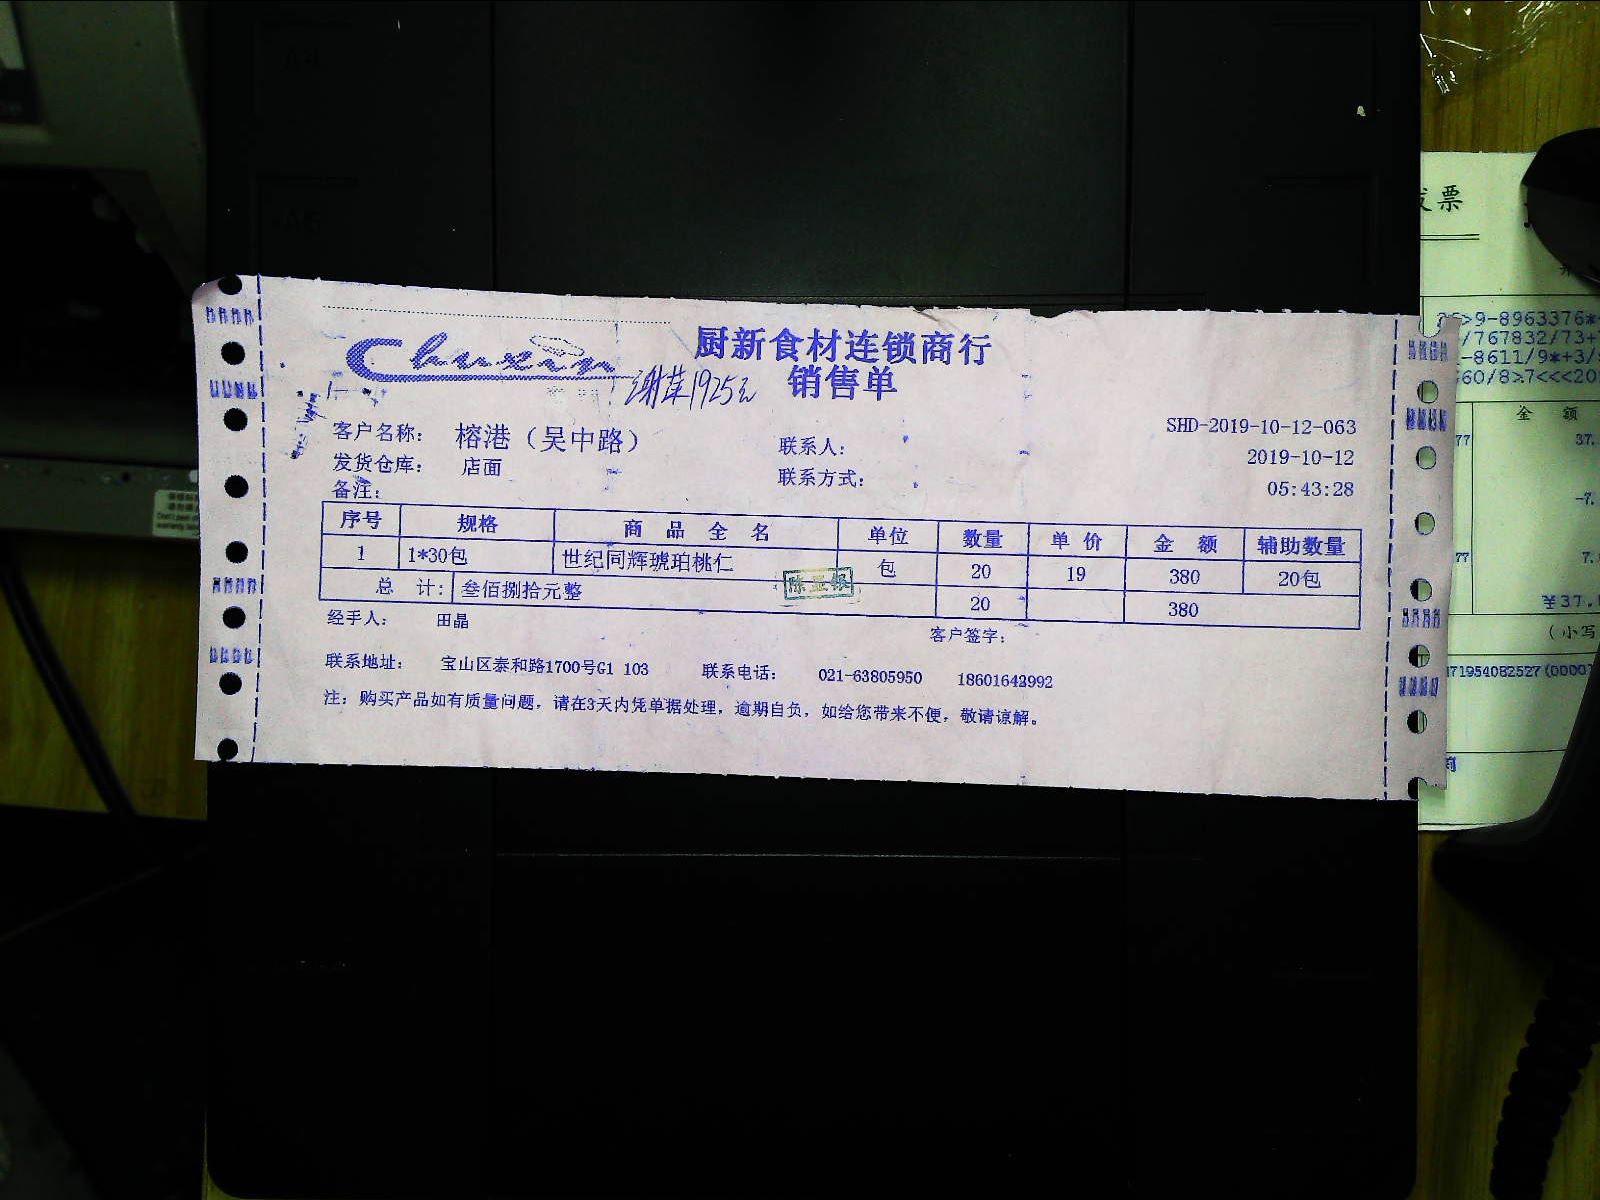 Chuxin
厨新食材连锁商行
销售单
1925元
SHD-2019-10-12-063
客户名称: 榕港（吴中路） 联系人: 2019-10-12
发货仓库: 店面 联系方式: 05:43:28
备注:
序号 规格 商品全名 单位 数量 单价 金额 辅助数量
1 1*30包 世纪同辉琥珀桃仁 包 20 19 380 20包
总计: 叁佰捌拾元整 20 380
经手人: 田晶 客户签字:
联系地址: 宝山区泰和路1700号G1 103 联系电话: 021-63805950 18601642992
注: 购买产品如有质量问题, 请在3天内凭单据处理, 逾期自负, 如给您带来不便, 敬请谅解。
票
>9-8963376*
/767832/73+
-8611/9*+3/
60/8>7<<<20
金 额
77 37.
-7.
77 7.
¥37.
(小写
71954082527(0000)